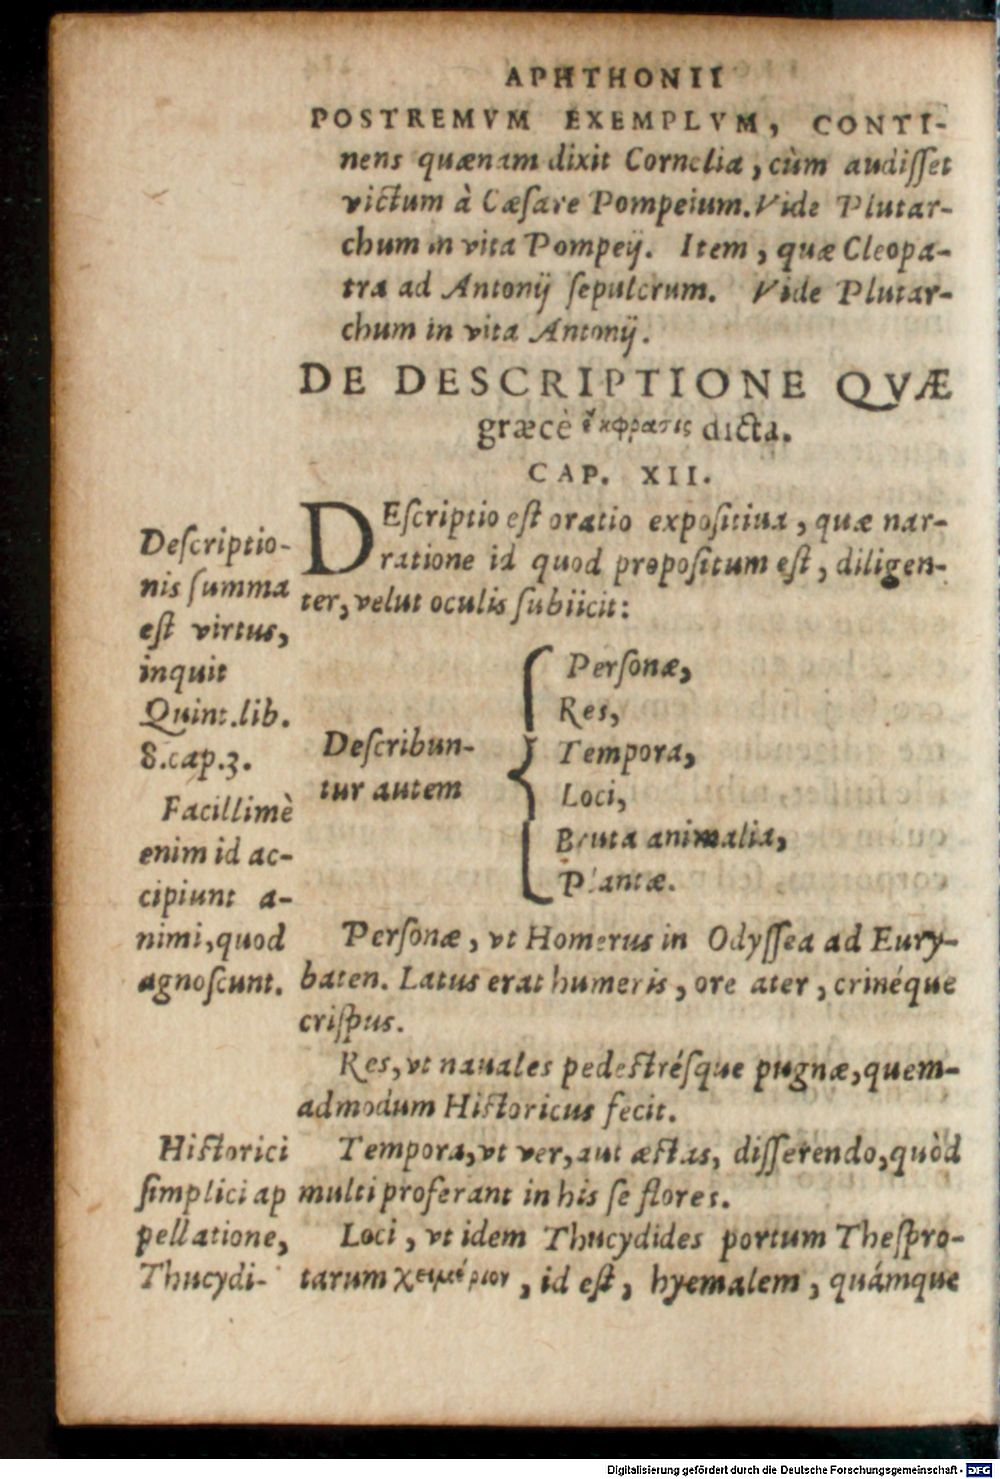 APHTHONII
POSTREMVM EXEMPLVM, CONTI-
nens quænam dixit Cornelia, cùm audiſſet
victum à Cæſare Pompeium. Vide Plutar-
chum in vita Pompeij. Item, quæ Cleopa-
tra ad Antonij ſepulcrum. Vide Plutar-
chum in vita Antonij.
DE DESCRIPTIONE QVÆ
græcè ἔκφρασις dicta.
CAP. XII.
DEſcriptio eſt oratio expoſitiua, quæ nar-
ratione id quod propoſitum eſt, diligen-
ter, velut oculis ſubiicit:
Deſcriptio-
nis ſumma
eſt virtus,
inquit
Quint.lib.
8.cap.3.
Facillimè
enim id ac-
cipiunt a-
nimi, quod
agnoſcunt.
Deſcribun-
tur autem
Perſonæ,
Res,
Tempora,
Loci,
Bruta animalia,
Plantæ.
Perſonæ, vt Homerus in Odyſſea ad Eury-
baten. Latus erat humeris, ore ater, crinéque
criſpus.
Res, vt nauales pedeſtréſque pugnæ, quem-
admodum Hiſtoricus fecit.
Tempora, vt ver, aut æſtas, diſſerendo, quòd
multi proferant in his ſe flores.
Loci, vt idem Thucydides portum Theſpro-
tarum χειμέριον, id eſt, hyemalem, quámque
Hiſtorici
ſimplici ap
pellatione,
Thucydi-
Digitalisierung gefördert durch die Deutsche Forschungsgemeinschaft - DFG